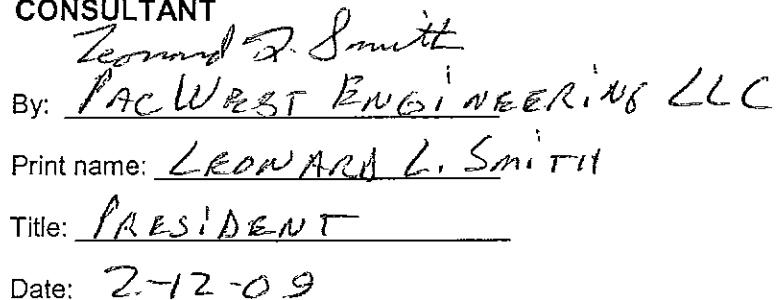 CONSULTANT
Leonard L. Smith
By: PAC WEST ENGINEERING LLC
Print name: LEONARD L. SMITH
Title: PRESIDENT
Date: 2-12-09